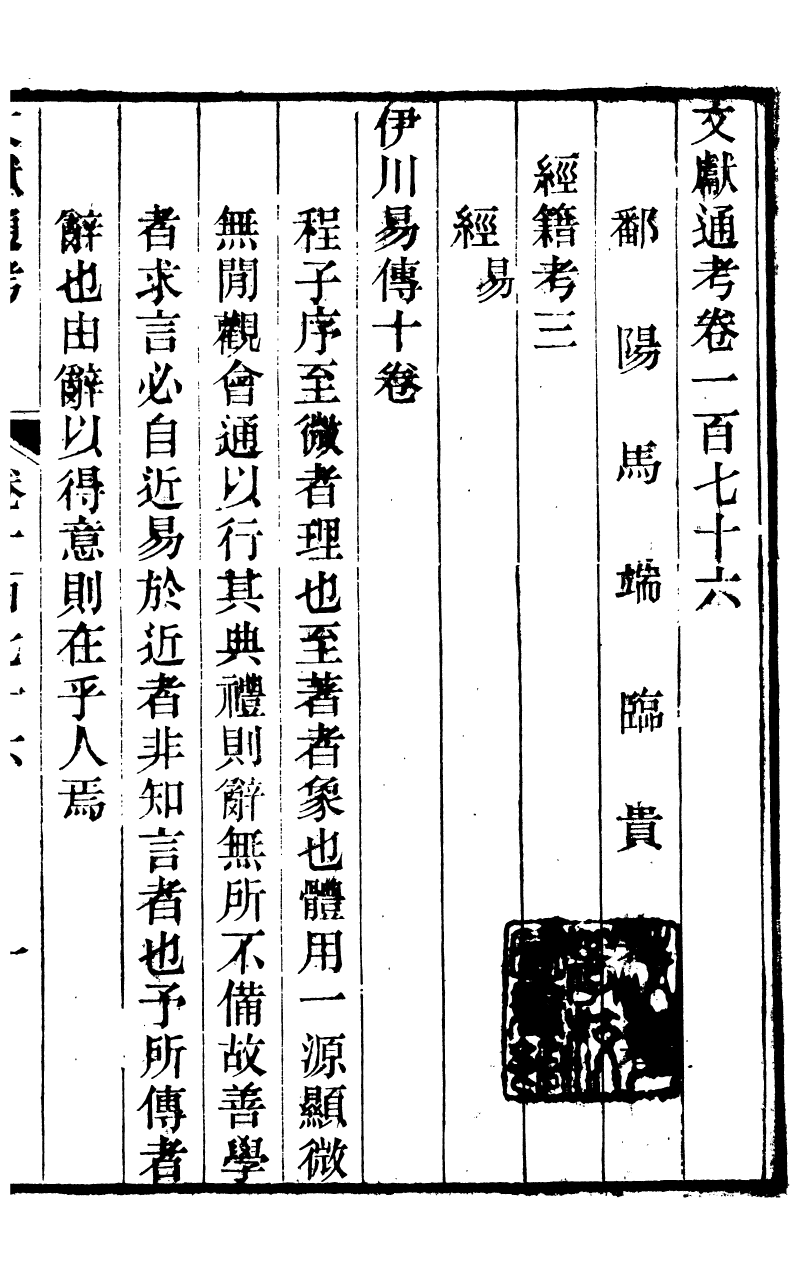 文獻通考卷一百七十六
鄱陽馬端臨貴
經籍考三
經易
伊川易傳十卷
程子序至微者理也至著者象也體用一源顯微
無閒觀會通以行其典禮則辭無所不備故善學
者求言必自近易於近者非知言者也予所傳者
辭也由辭以得意則在乎人焉
文獻通考 卷一百七十六 一